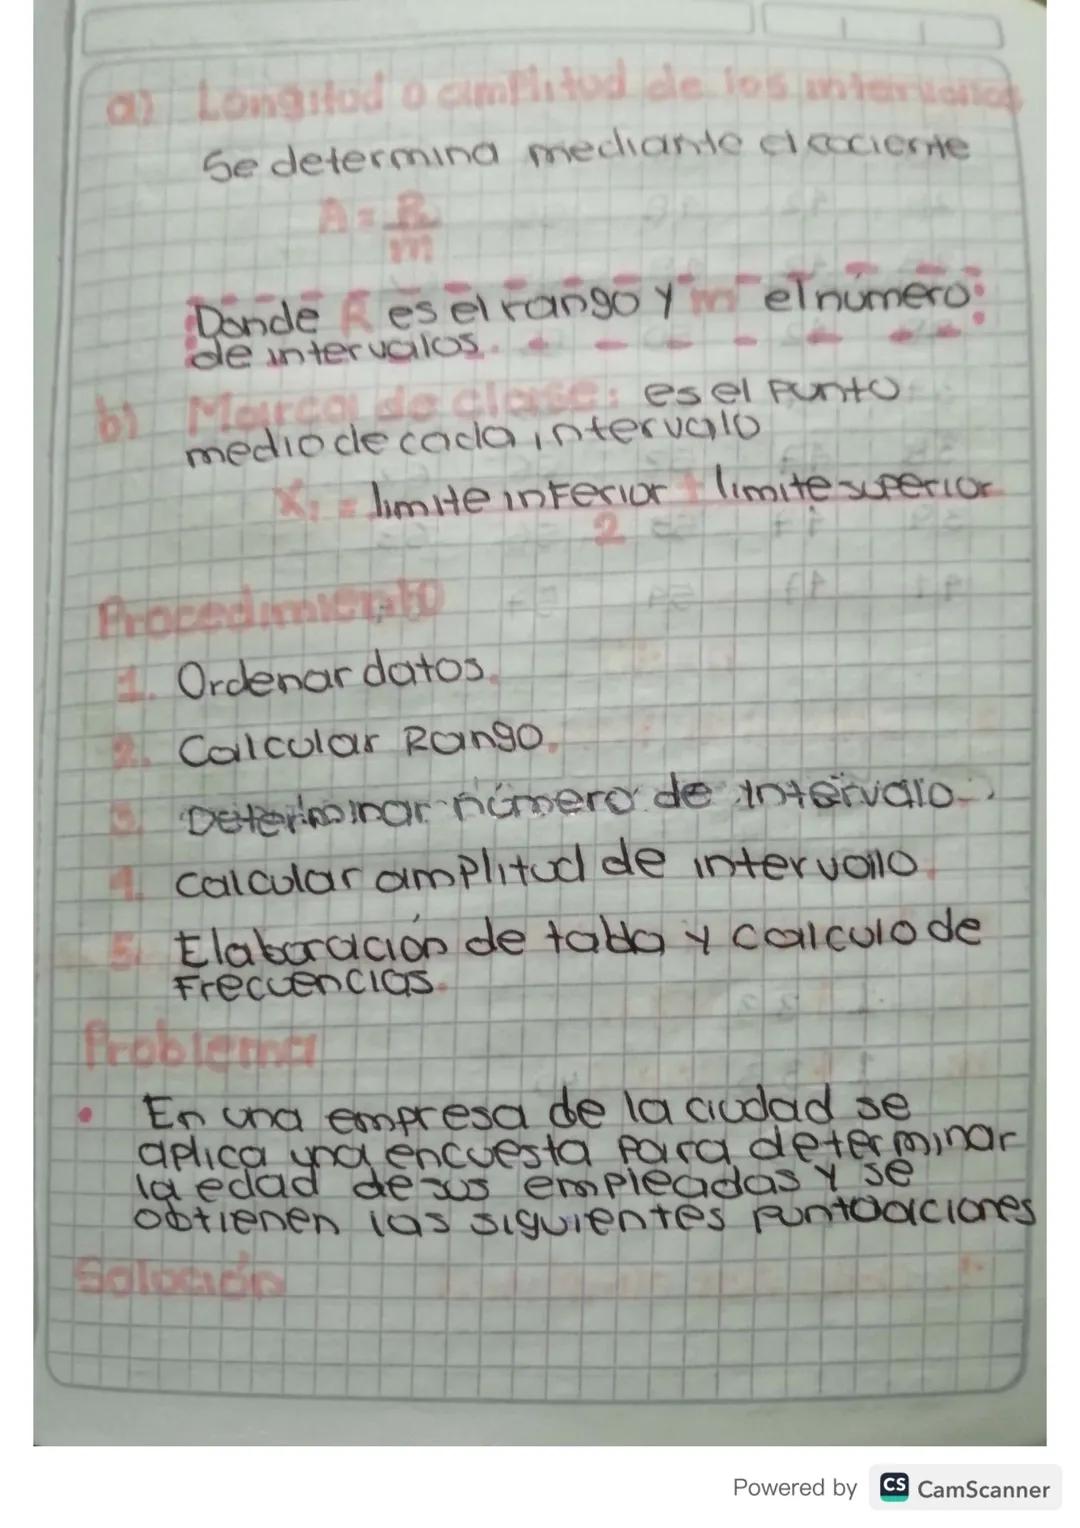 a) Longitud o amplitud de los intervalos
Se determina mediante el cociente
A = R
m
Donde R es el rango y "m" el número
de intervalos.
b) Marca de clase: es el punto
medio de cada intervalo
X₁ = limite inferior + limite superior
2
Procedimiento
1. Ordenar datos.
2. Calcular Rango.
3. Determinar número de intervalo.
4. calcular amplitud de intervalo.
5. Elaboración de tabla y calculo de
Frecuencias.
Problema
• En una empresa de la ciudad se
aplica una encuesta para determinar
la edad de sus empleadas y se
obtienen las siguientes puntoaciones
Solución
Powered by CS CamScanner